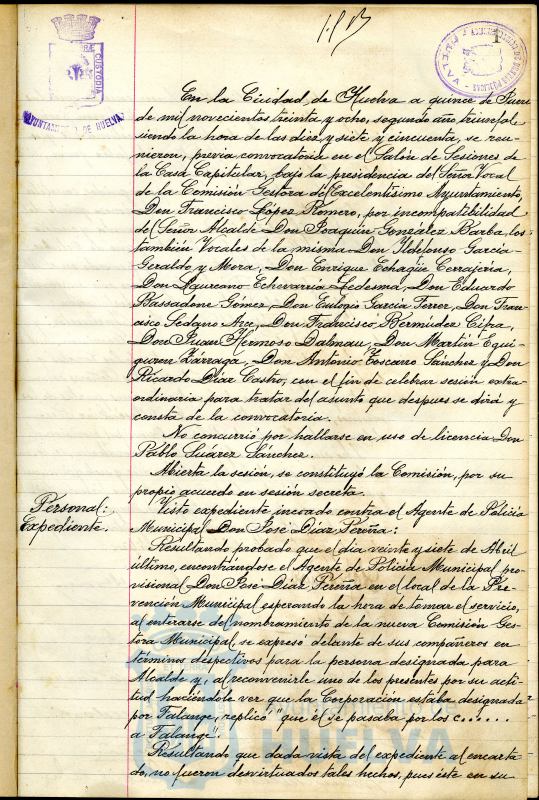 1.ª B
1
CUSTODIA
AYUNTAMIENTO DE HUELVA
HUELVA
En la Ciudad de Huelva a quince de Junio
de mil novecientos treinta y ocho, segundo año triunfal
siendo la hora de las diez y siete y cincuenta, se reu-
nieron, previa convocatoria en el Salón de Sesiones de
la Casa Capitular, bajo la presidencia del Señor Vocal
de la Comisión Gestora del Excelentísimo Ayuntamiento,
Don Francisco López Romero, por incompatibilidad
del Señor Alcalde Don Joaquín González Barba, los
también Vocales de la misma Don Ildefonso García-
Geraldo y Mora, Don Enrique Echagüe Cerrajería,
Don Laureano Echevarría Ledesma, Don Eduardo
Bassadone Gómez, Don Eulogio García Ferrer, Don Fran-
cisco Sedano Arce, Don Francisco Bermúdez Cifra,
Don Juan Hermoso Dalmau, Don Martín Egui-
guren Larraga, Don Antonio Toscano Sánchez y Don
Ricardo Díaz Castro, con el fin de celebrar sesión extra-
ordinaria para tratar del asunto que después se dirá y
consta de la convocatoria.
No concurrió por hallarse en uso de licencia Don
Pablo Suárez Sánchez.
Abierta la sesión, se constituyó la Comisión, por su
propio acuerdo en sesión secreta.
Personal:
Expediente.
Visto expediente incoado contra el Agente de Policía
Municipal Don José Díaz Pereña:
Resultando probado que el día veinte y siete de Abril
último, encontrándose el Agente de Policía Municipal pro-
visional Don José Díaz Pereña en el local de la Pre-
vención Municipal esperando la hora de tomar el servicio,
al enterarse del nombramiento de la nueva Comisión Ges-
tora Municipal, se expresó delante de sus compañeros en
términos despectivos para la persona designada para
Alcalde y, al reconvenirle uno de los presentes por su acti-
tud haciéndole ver que la Corporación estaba designada
por Falange, replicó "que él se pasaba por los c......
a Falange".
Resultando que dada vista del expediente al encarta-
do, no fueron desvirtuados tales hechos, pues éste en su
HUELVA